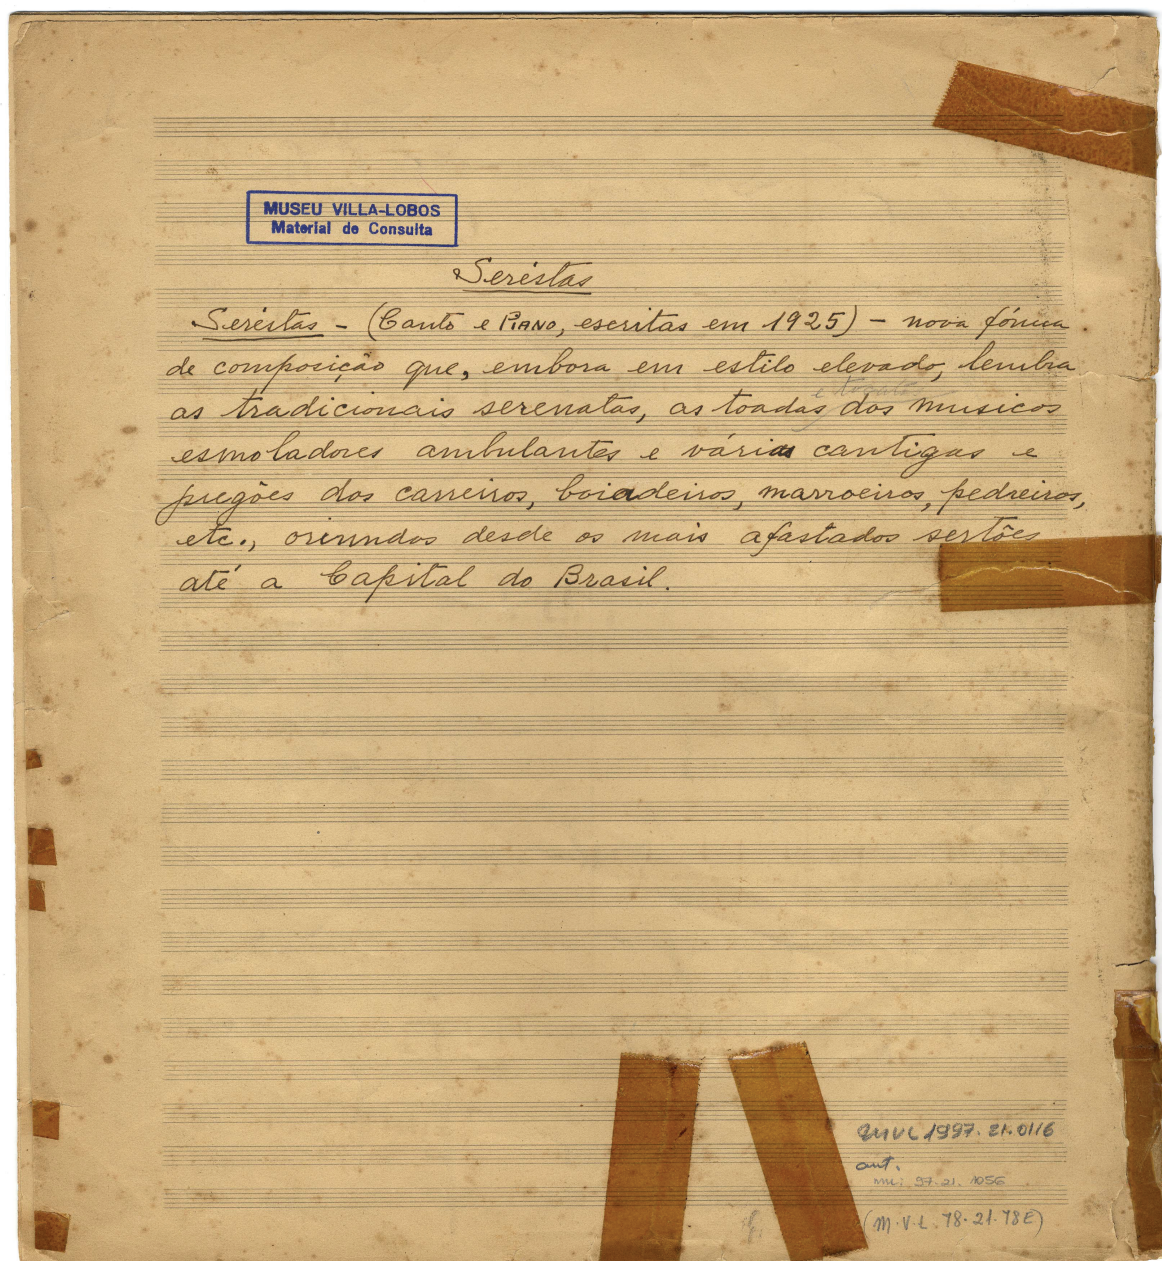 MUSEU VILLA-LOBOS
Material de Consulta
Seréstas
Seréstas - (Canto e PIANO, escritas em 1925) - nova fórma
de composição que, embora em estilo elevado, lembra
as tradicionais serenatas, as toadas dos musicos
esmoladores ambulantes e várias cantigas e
pregões dos carreiros, boiadeiros, marroeiros, pedreiros,
etc., oriundos desde os mais afastados sertões
até a Capital do Brasil.
MVL 1997.21.0116
ant.
97.21.1056
(M.V.L. 78.21.78E)